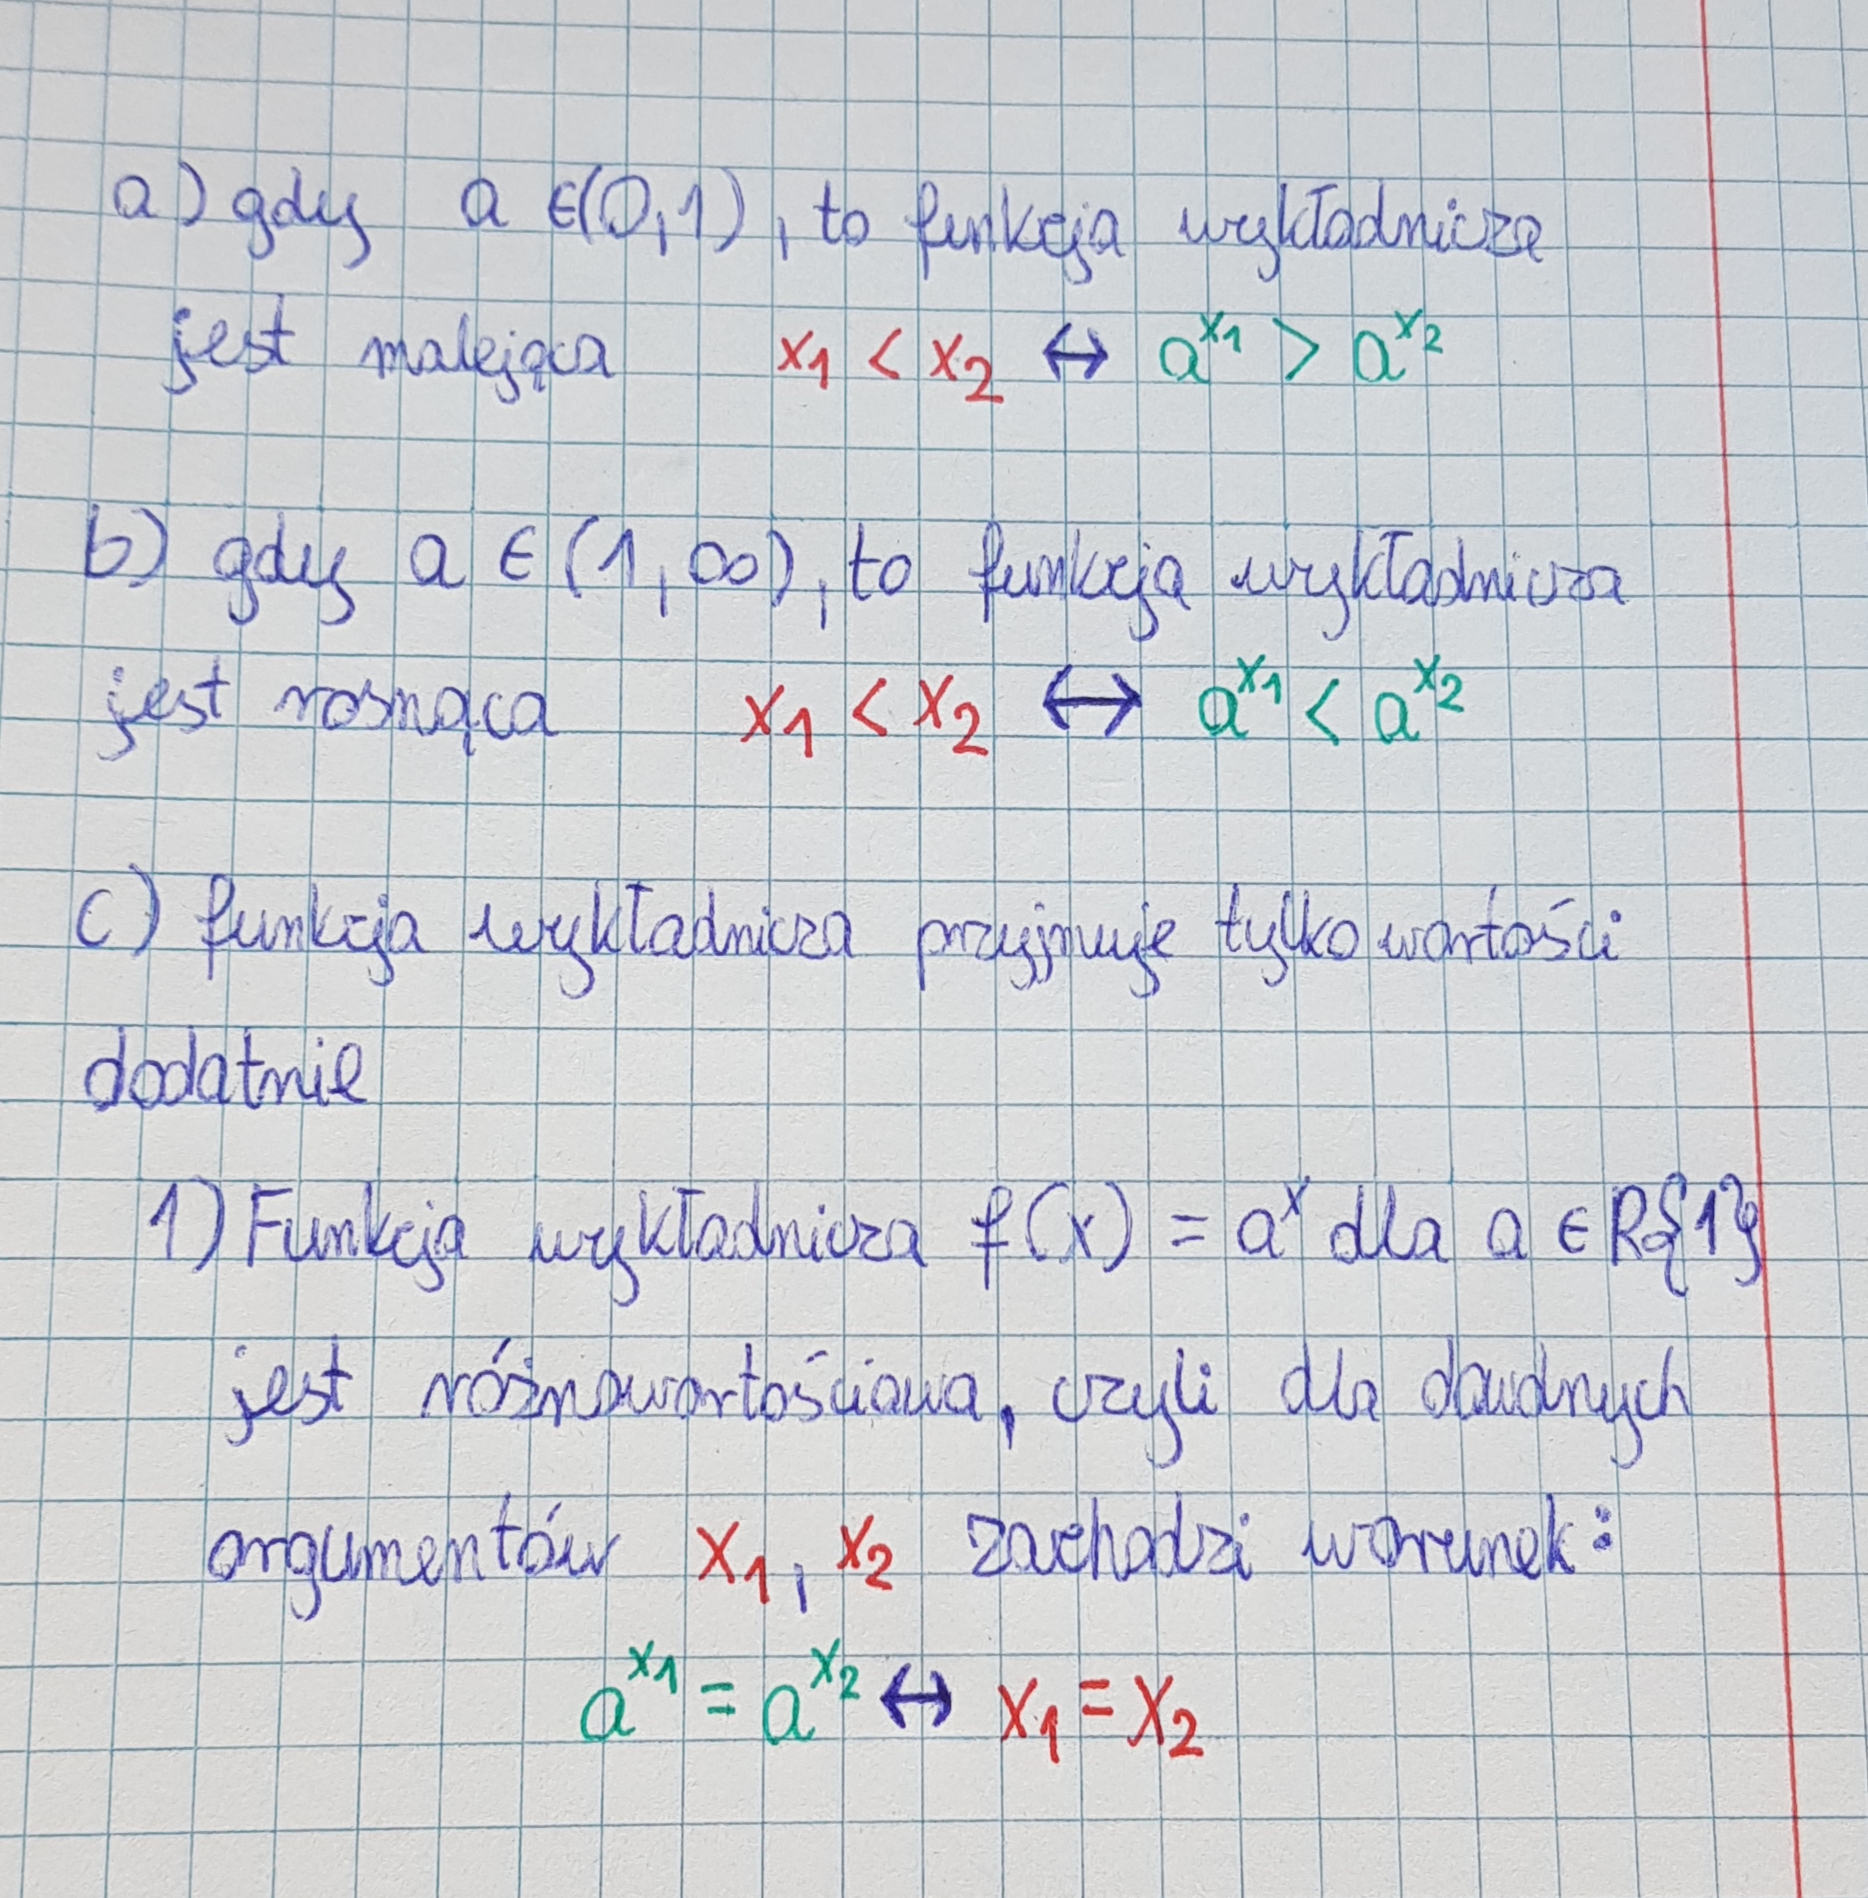 a) gdy a ∈(0,1), to funkcja wykładnicza
jest malejąca x₁ < x₂ ↔ aˣ¹ > aˣ²
b) gdy a ∈ (1,∞), to funkcja wykładnicza
jest rosnąca x₁ < x₂ ↔ aˣ¹ < aˣ²
c) funkcja wykładnicza przyjmuje tylko wartości
dodatnie
1) Funkcja wykładnicza f(x) = aˣ dla a ∈ R{1}
jest różnowartościowa, czyli dla
argumentów x₁, x₂ zachodzi warunek:
aˣ¹ = aˣ² ↔ x₁ = x₂